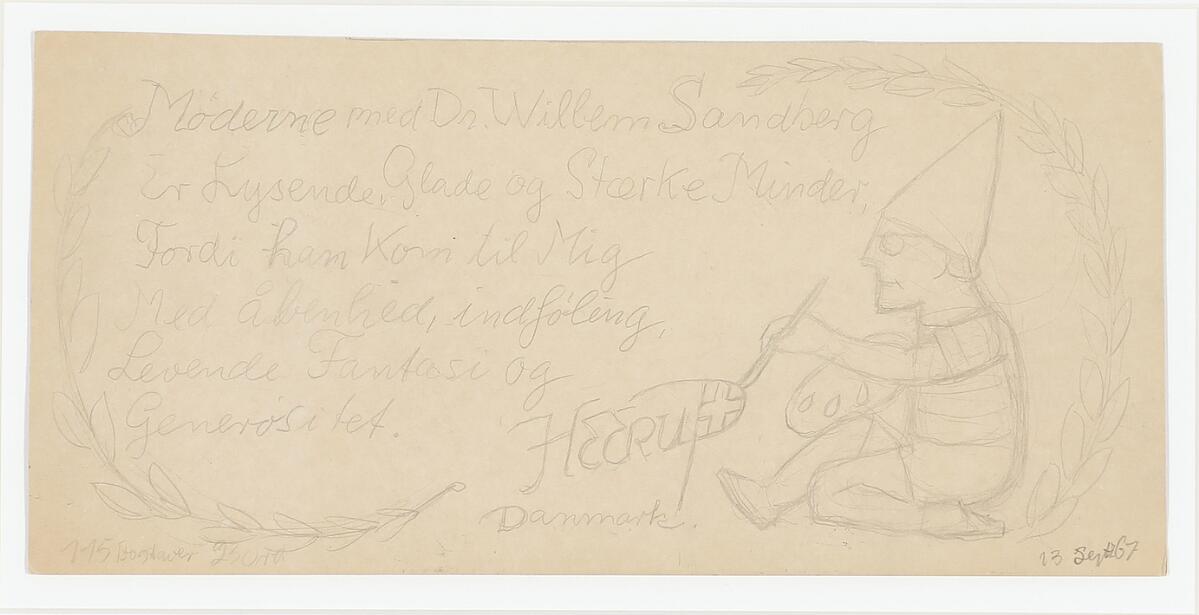 Møderne med Dr. Willem Sandberg
Er Lysende, Glade og Stærke Minder,
Fordi han Kom til Mig
Med åbenhed, indføling,
Levende Fantasi og
Generøsitet.
HEERUP
Danmark.
13 Sept 67